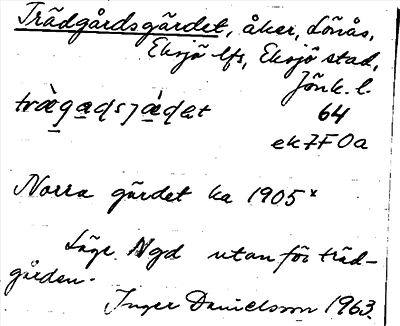 Trädgårdsgärdet, åker, Lönås,
Eksjö lfs, Eksjö stad,
Jönk. l.
64
ek7F0a
Norra gärdet ka 1905x
Läge Ngd utanför träd-
gården.
Inger Danielsson 1963.